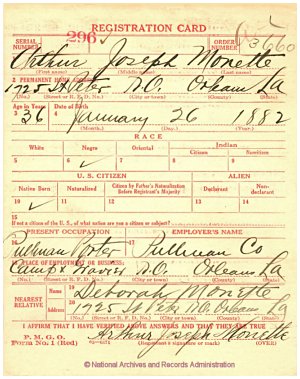 REGISTRATION CARD
SERIAL NUMBER 296 ORDER NUMBER 3660
Arthur Joseph Monette
(First name) (Middle name) (Last name)
2 PERMANENT HOME ADDRESS:
1725 St Peter N.O. Orleans La
(No.) (Street or R. F. D. No.) (City or town) (County) (State)
Age in Years Date of Birth
3 4
36 January 26 1882
(Month.) (Day.) (Year.)
RACE
White Negro Oriental Indian
Citizen Noncitizen
5 6 7 8 9
✓
U. S. CITIZEN ALIEN
Native Born Naturalized Citizen by Father's Naturalization Before Registrant's Majority Declarant Non-declarant
10 11 12 13 14
✓
15
If not a citizen of the U. S., of what nation are you a citizen or subject?
PRESENT OCCUPATION EMPLOYER'S NAME
16 17
Pullman Porter Pullman Co
18 PLACE OF EMPLOYMENT OR BUSINESS:
Camp & N.O. Orleans La
(No.) (Street or R. F. D. No.) (City or town) (County) (State)
NEAREST RELATIVE
Name 19 Deborah Monette
Address 20 1725 St Peter N.O. Orleans La
(No.) (Street or R. F. D. No.) (City or town) (County) (State)
I AFFIRM THAT I HAVE VERIFIED ABOVE ANSWERS AND THAT THEY ARE TRUE
P. M. G. O.
Form No. 1 (Red) Arthur Joseph Monette
(Registrant's signature or mark) (OVER)
© National Archives and Records Administration